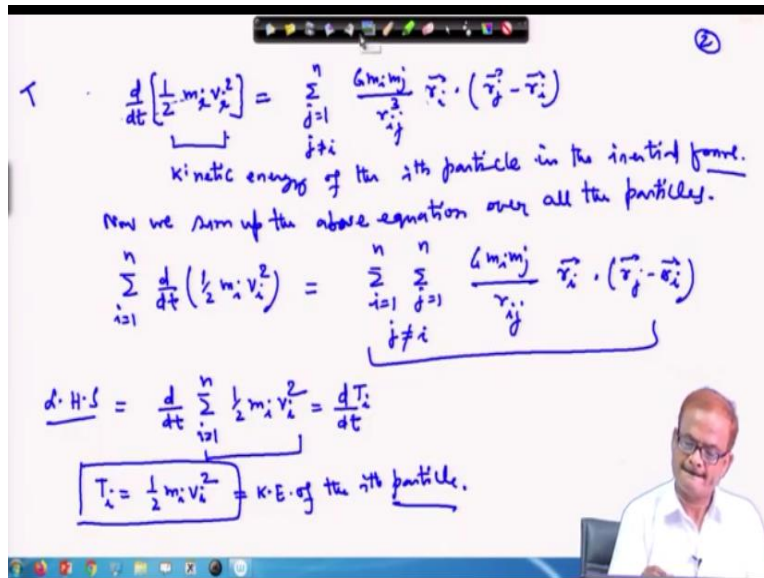 ②
T · d/dt [1/2 m_i v_i^2] = \sum_{j=1, j≠i}^{n} G m_i m_j / r_{ij}^3 \vec{r_i} · (\vec{r_j} - \vec{r_i})
Kinetic energy of the ith particle in the inertial frame.
Now we sum up the above equation over all the particles.
\sum_{i=1}^{n} d/dt (1/2 m_i v_i^2) = \sum_{i=1}^{n} \sum_{j=1, j≠i}^{n} G m_i m_j / r_{ij} \vec{r_i} · (\vec{r_j} - \vec{r_i})
L.H.S = d/dt \sum_{i=1}^{n} 1/2 m_i v_i^2 = dT_i/dt
T_i = 1/2 m_i v_i^2 = K.E. of the ith particle.